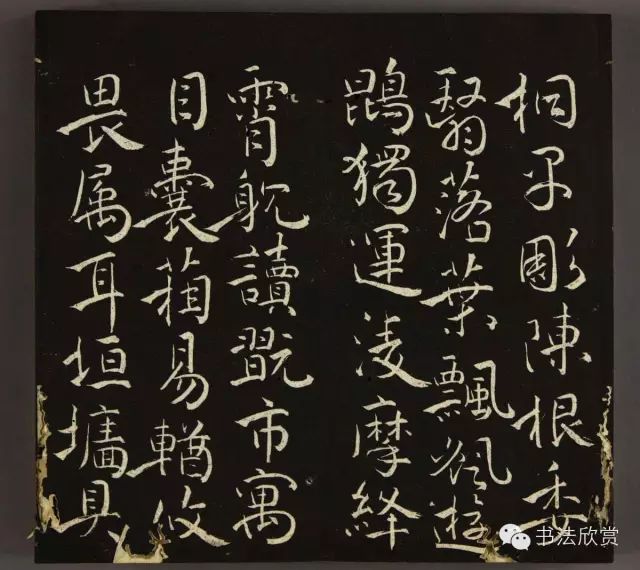 桐早彫陳根委
翳落葉飄颻遊
鵾獨運淩摩絳
霄躭讀翫市寓
目囊箱易輶攸
畏属耳垣墻具
书法欣赏